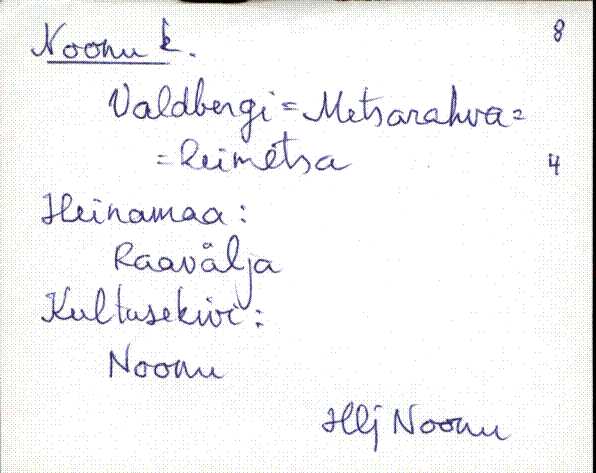 Noonu k.
8
Valdbergi = Metsarahva =
= Reimetsa
4
Heinamaa:
Raavälja
Kultusekivi:
Noonu
Hlj Noonu